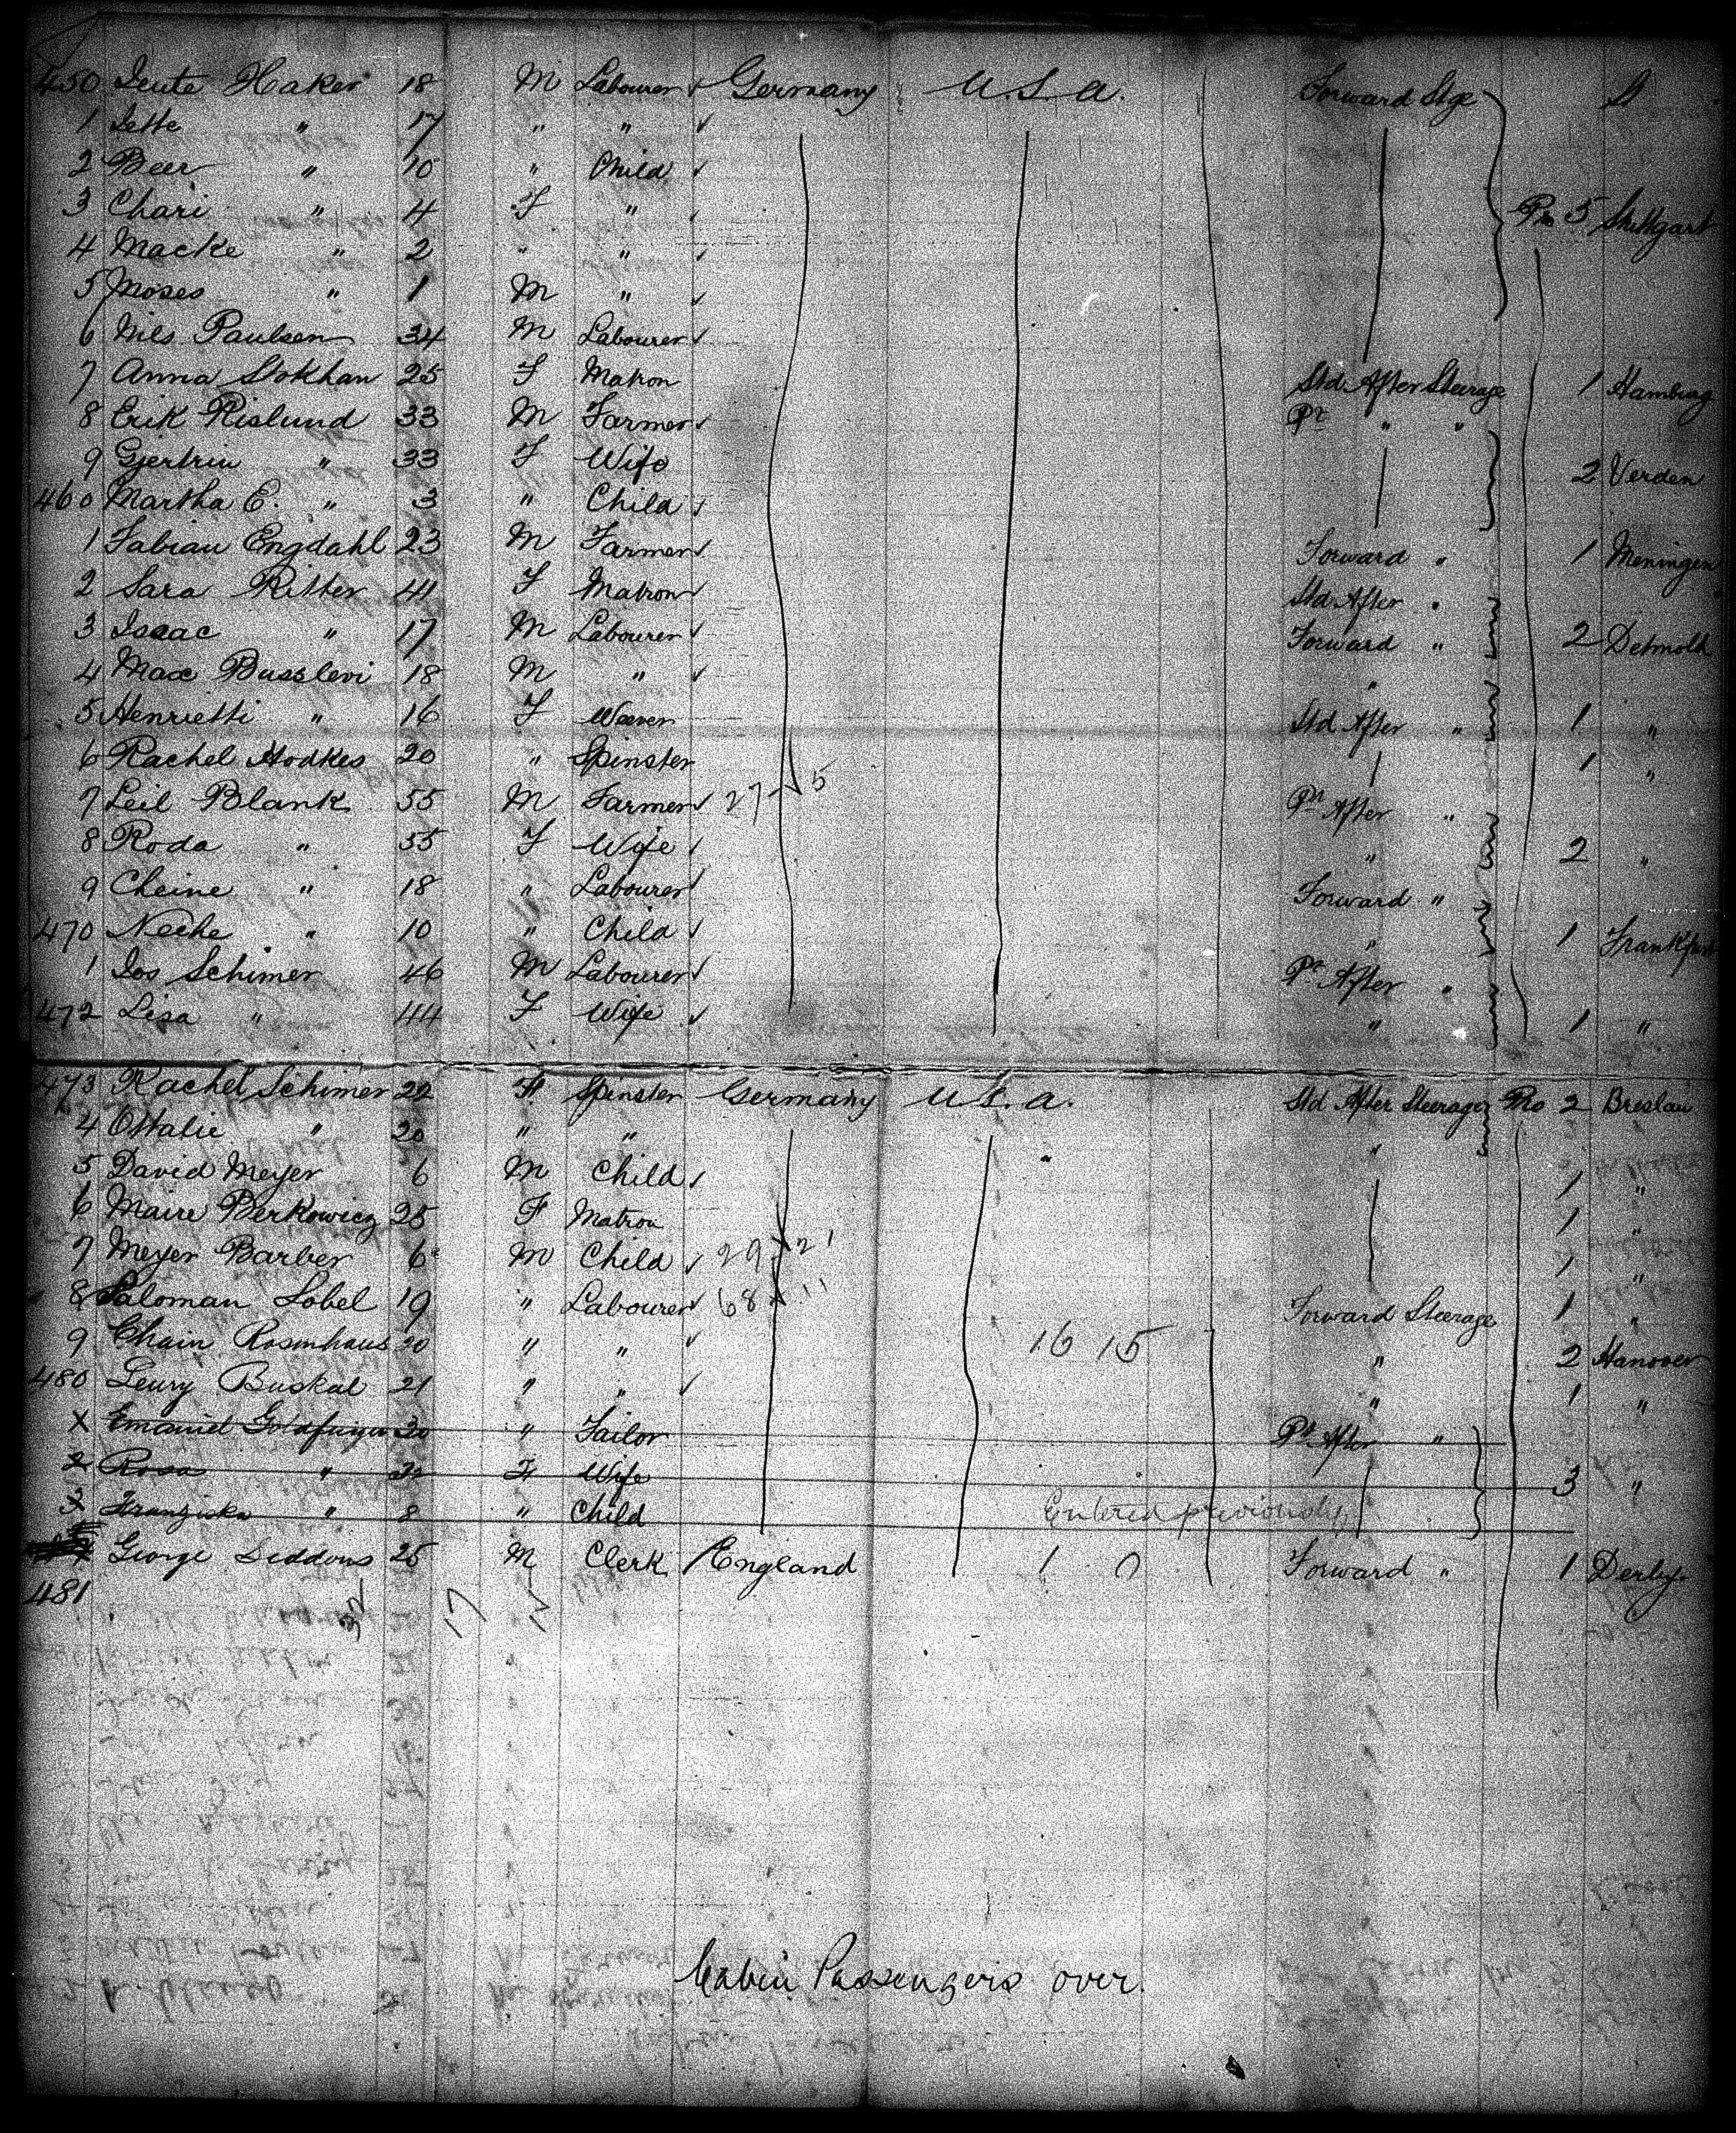 450 Leute Haker 18 M Labourer Germany U.S.A. Forward Stge
1 Lette " 17 " "
2 Beer " 10 " Child
3 Chari " 4 F " 5 Stuttgart
4 Macke " 2 " "
5 Moses " 1 M "
6 Nils Paulsen 34 M Labourer
7 Anna Stokhan 25 F Matron Std After Steerage 1 Hamburg
8 Erik Rislund 33 M Farmer Pr " "
9 Gjertrin " 33 F Wife 2 Verden
460 Martha E. " 3 " Child
1 Fabian Engdahl 23 M Farmer Forward " 1 Meningen
2 Sara Ritter 41 F Matron Std After "
3 Isaac " 17 M Labourer Forward " 2 Detmold
4 Max Busslevi 18 M " "
5 Henrietti " 16 F Weaver Std After " 1 "
6 Rachel Hodkes 20 " Spinster 1 "
7 Leil Blank 55 M Farmer 27 5 Pr After "
8 Roda " 55 F Wife " 2 "
9 Cheine " 18 " Labourer Forward "
470 Neche " 10 " Child " 1 Frankfurt
1 Jos Schimer 46 M Labourer Pr After "
472 Lisa " 44 F Wife " 1 "
473 Rachel Schimer 22 F Spinster Germany U.S.A. Std After Steerage 2 Breslau
4 Ottalie " 20 " " "
5 David Meyer 6 M Child 1 "
6 Maire Berkowicz 25 F Matron 1 "
7 Meyer Barber 6 M Child 29 21 1 "
8 Saloman Lobel 19 " Labourer 68 11 Forward Steerage 1 "
9 Chain Rosenhaus 20 " " 16 15 " 2 Hanover
480 Leury Buskal 21 " " " 1 "
X Emanuel 30 " Tailor Pr After "
2 Rosa " 32 F Wife 3 "
3 Franziska " 8 " Child Entered previously
George Siddons 25 M Clerk England 1 0 Forward " 1 Derby
481
32 17 12
Cabin Passengers over.